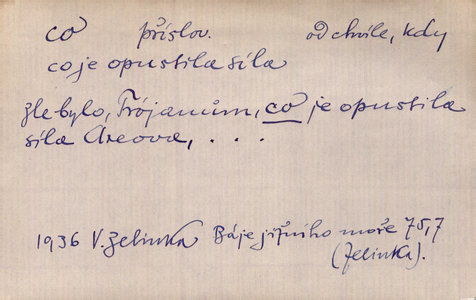 co příslov. od chvíle, kdy
co je opustila síla
zle bylo, Trójanům, co je opustila
síla Areova, . . .
1936 V. Zelinka Báje jižního moře 75,7
(Zelinka).